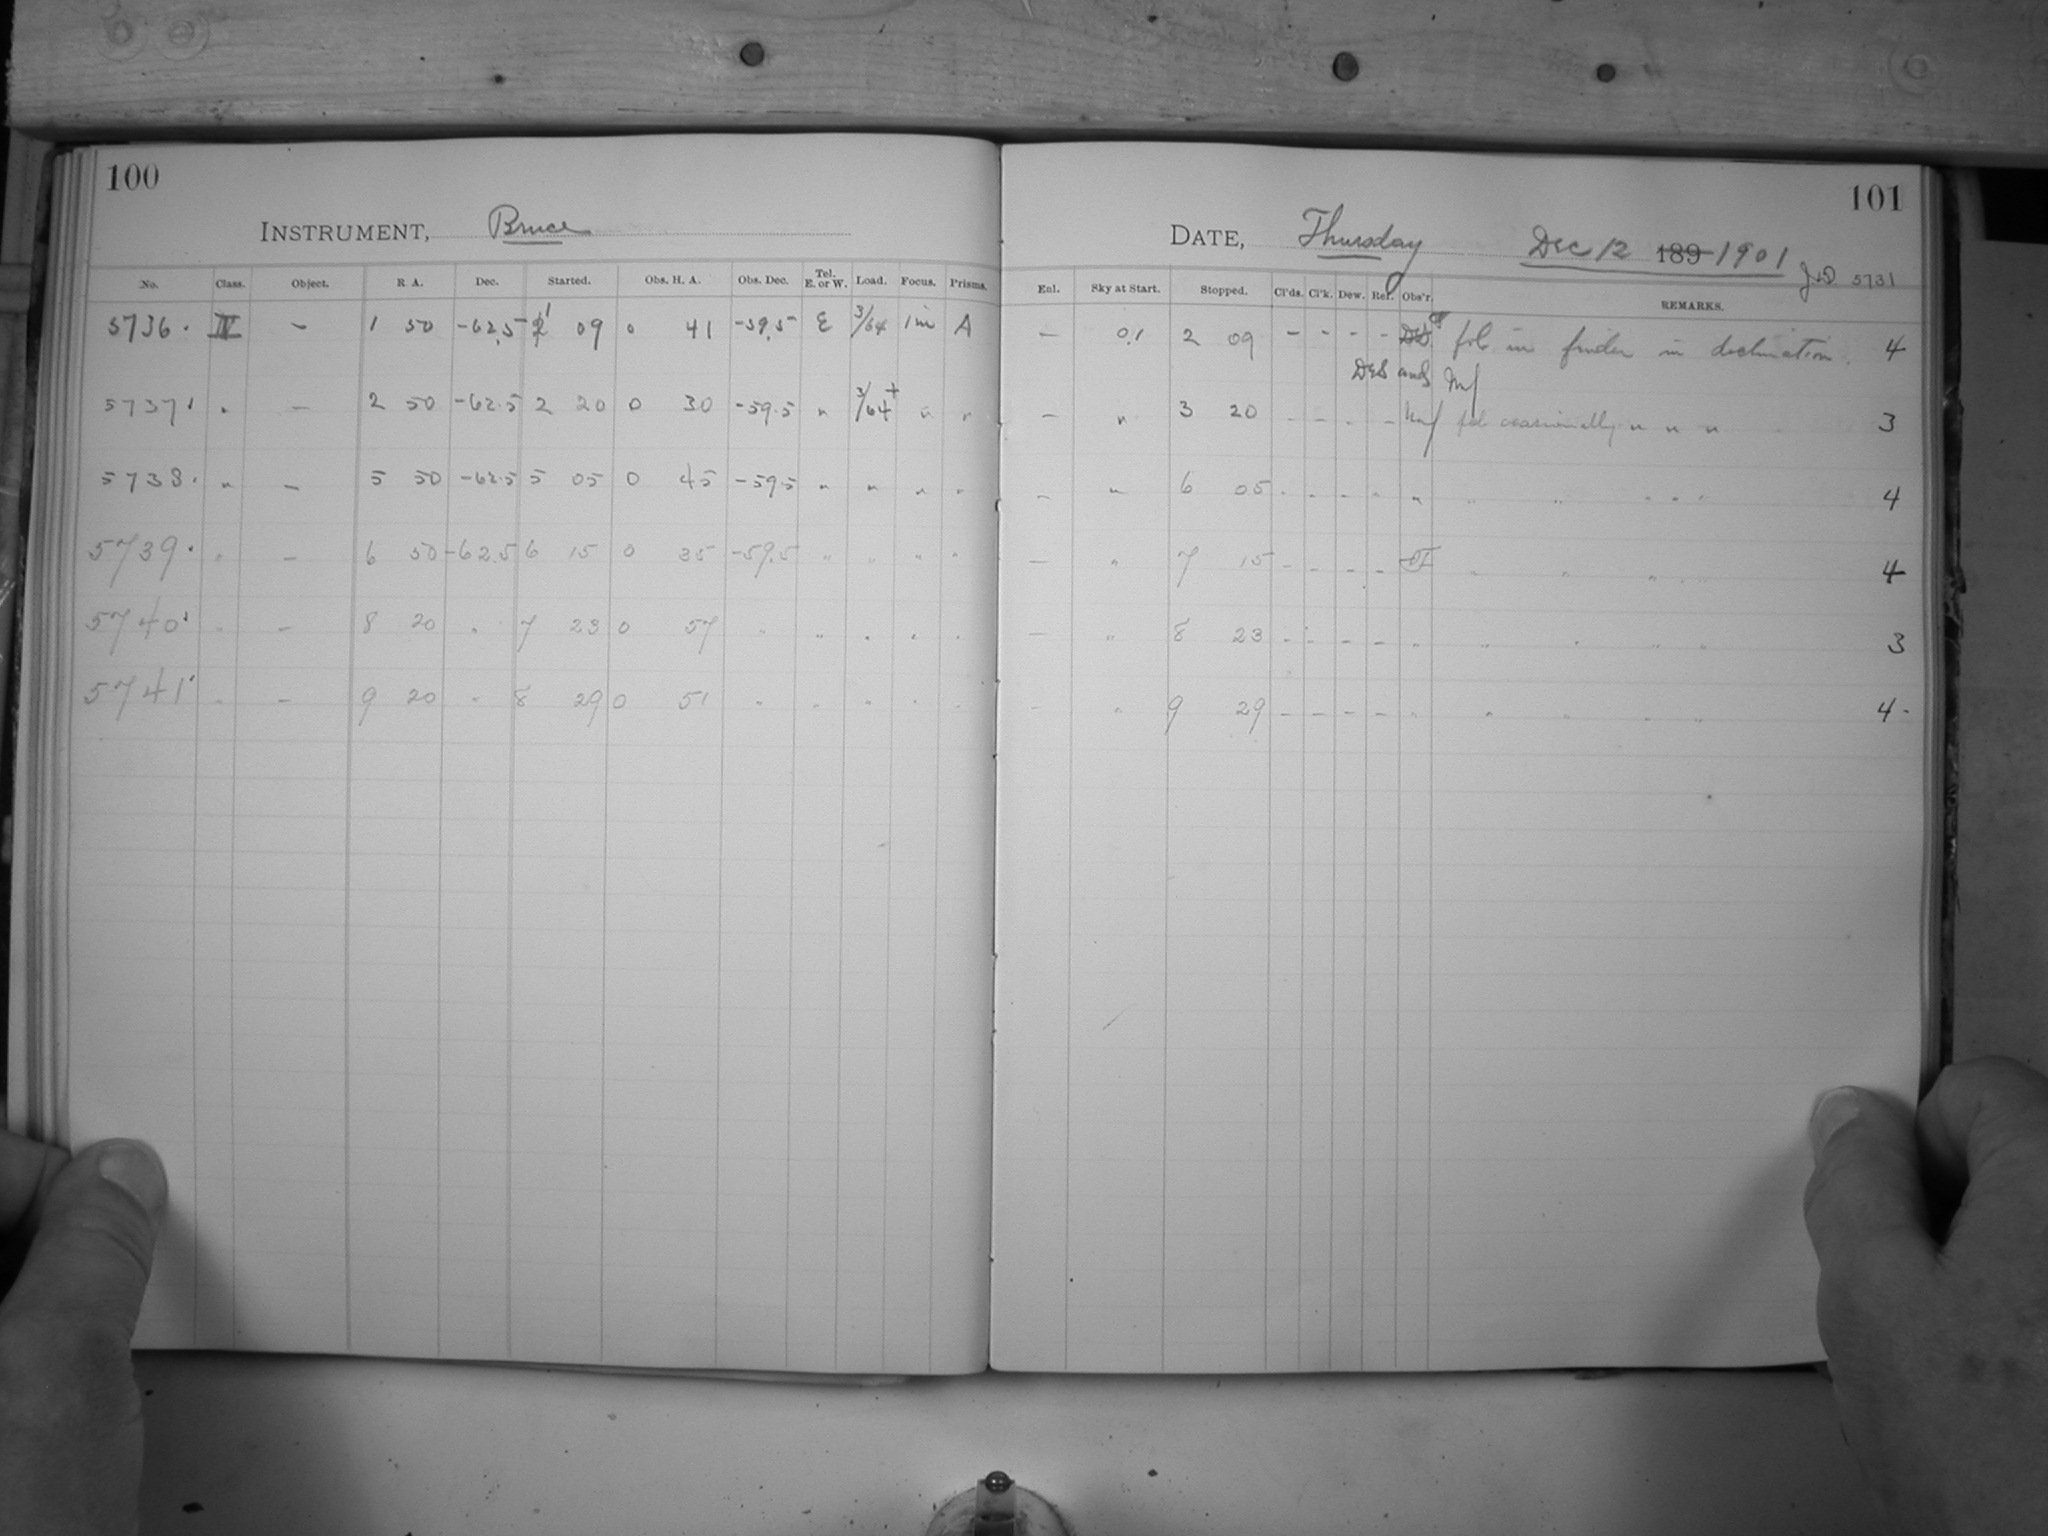 100
INSTRUMENT, Bruce
No. Class. Object. R A. Dec. Started. Obs. H. A. Obs. Dec. Tel. E. or W. Load. Focus. Prisms.
5736. IV – 1 50 -62.5 1 09 0 41 -59.5 E 3/64 1 in A
5737 " – 2 50 -62.5 2 20 0 30 -59.5 " 3/64+ " "
5738. " – 5 50 -62.5 5 05 0 45 -59.5 " " " "
5739. " – 6 50 -62.5 6 15 0 35 -59.5 " " " "
5740 " – 8 20 " 7 23 0 57 " " " " "
5741 " – 9 20 " 8 29 0 51 " " " " "
101
DATE, Thursday Dec 12 189 1901
J.D. 5731
Enl. Sky at Start. Stopped. Cl'ds. Cl'k. Dew. Ref. Obs'r. REMARKS.
– 0.1 2 09 – – – – fol. in finder in declination. 4
DES and
– " 3 20 – – – – fol. occasionally " " " 3
– " 6 05 – – – – " " " " " " 4
– " 7 15 – – – – " " " " 4
– " 8 23 – – – – " " " " " 3
– " 9 29 – – – – " " " " " 4